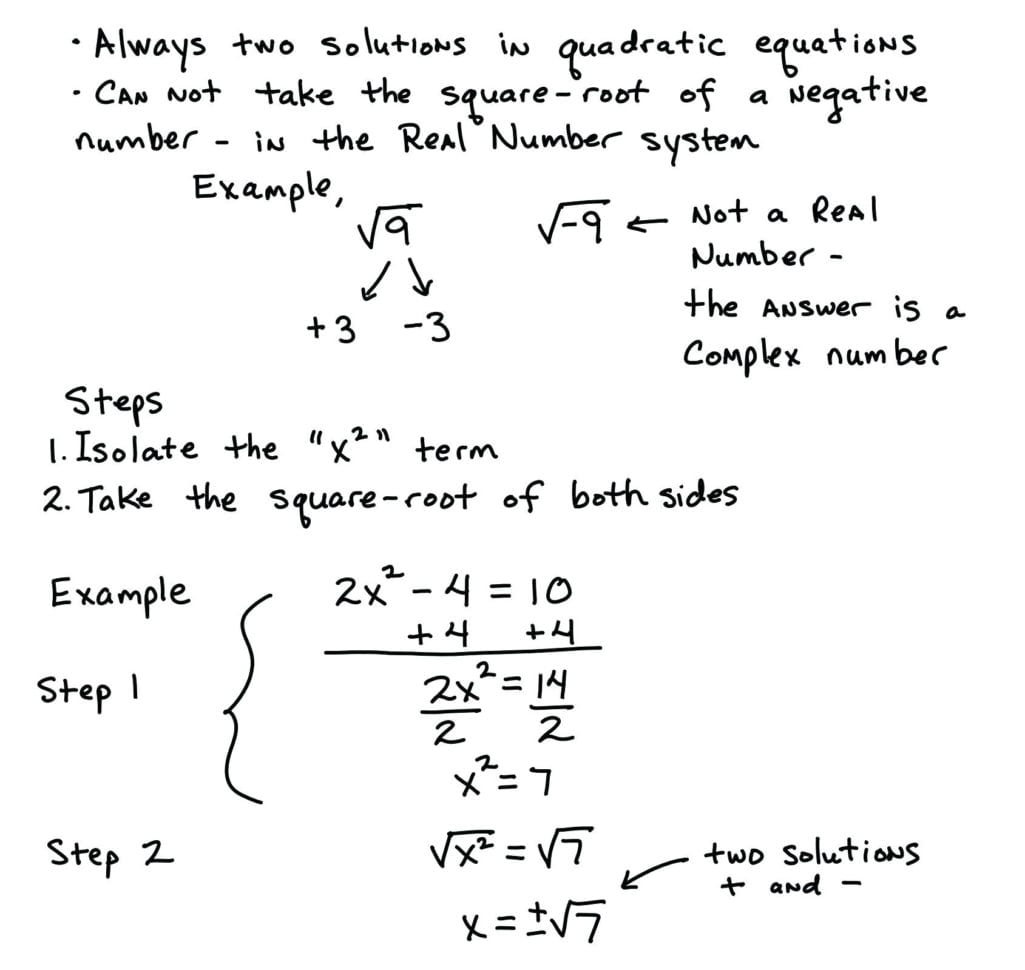 · Always two solutions in quadratic equations
· Can Not take the square-root of a Negative
number - in the Real Number system
Example,
√9
√-9 ← Not a Real
Number -
the Answer is a
Complex number
↙ ↘
+3 -3
Steps
1. Isolate the "x²" term
2. Take the square-root of both sides
Example
2x² - 4 = 10
+4 +4
Step 1
2x² = 14
2 2
x² = 7
Step 2
√x² = √7
x = ±√7
two solutions
+ and -